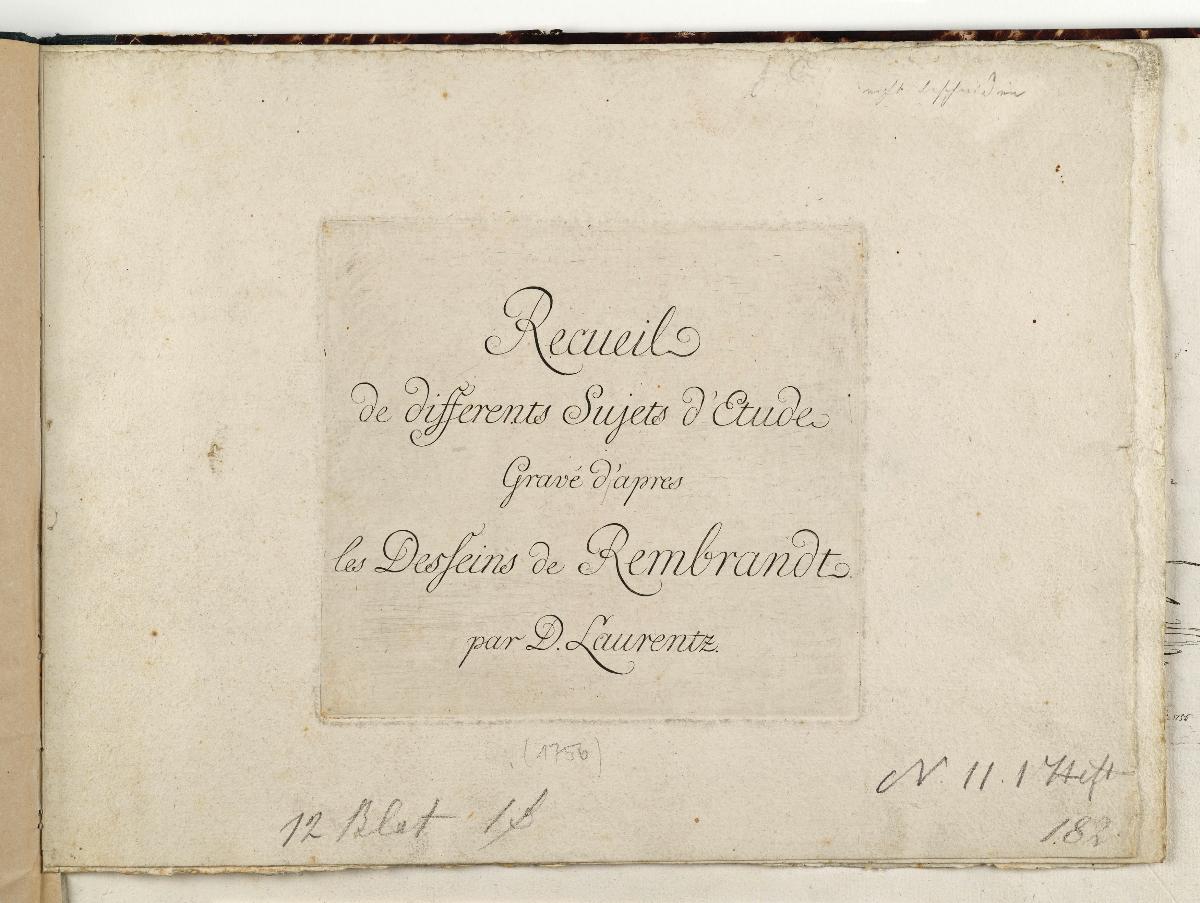 nicht beschneiden
Recueil
de differents Sujets d'Etude
Gravé d'apres
les Desseins de Rembrandt
par D. Laurentz.
(1756)
N. 11. 1 Heft
12 Blat
182